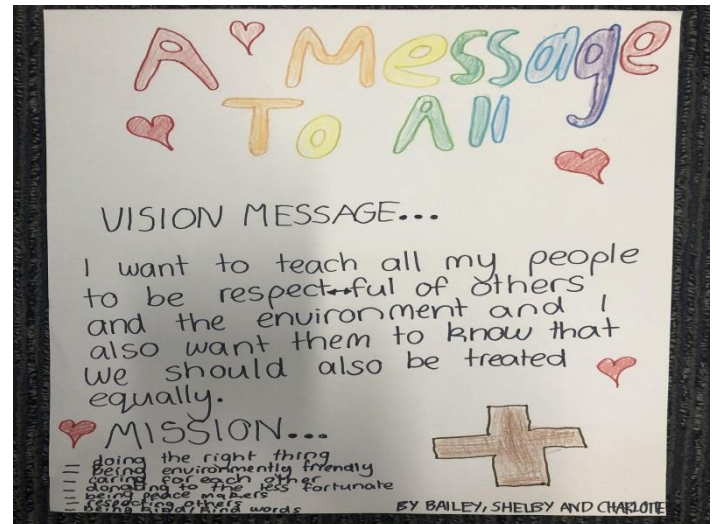 A Message
To All
VISION MESSAGE...
I want to teach all my people
to be respectful of others
and the environment and I
also want them to know that
we should also be treated
equally.
MISSION...
- doing the right thing
- being environmently friendly
- caring for each other
- donating to the less fortunate
- being peace makers
- respecting others
kind words
BY BAILEY, SHELBY AND CHARLOTE